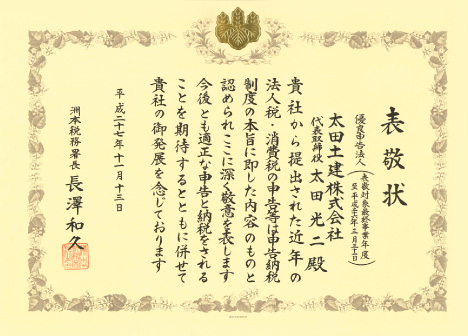 表敬状
優良申告法人
(表敬対象最終事業年度
至平成二十六年三月三十一日)
太田土建株式会社
代表取締役 太田光二 殿
貴社から提出された近年の
法人税・消費税の申告等は申告納税
制度の本旨に即した内容のものと
認められここに深く敬意を表します
今後とも適正な申告と納税をされる
ことを期待するとともに併せて
貴社の御発展を念じております
平成二十七年十一月十三日
洲本税務署長 長澤和久